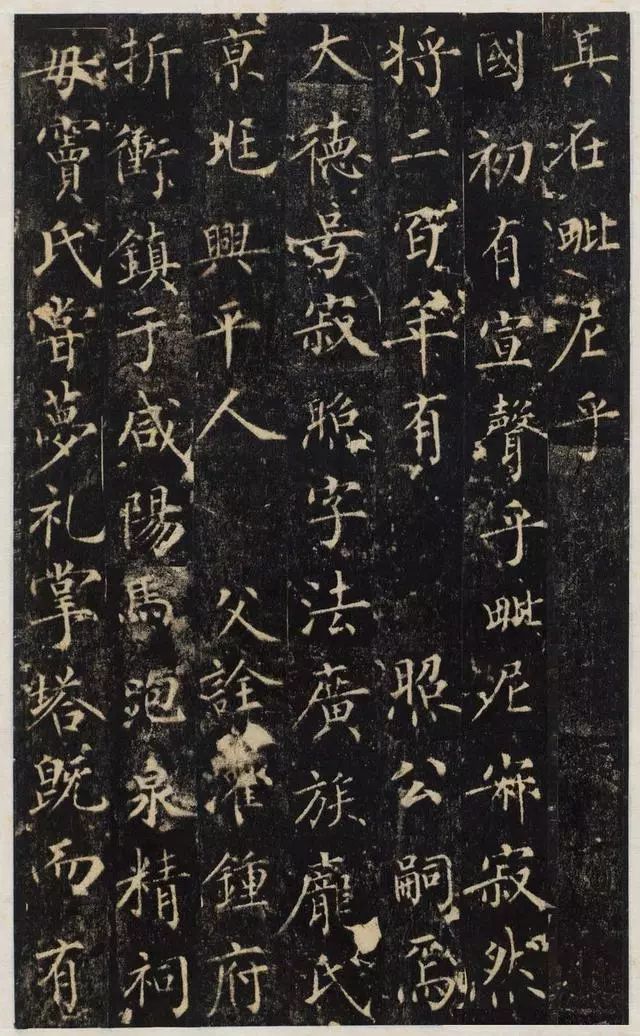 其在毗尼乎
國初有宣聲乎毗尼寐寂然
将二百年有照公嗣焉
大德号寂照字法廣族龐氏
京兆興平人父詮灌鍾府
折衝鎮于咸陽馬跑泉精祠
母竇氏嘗夢礼掌塔既而有